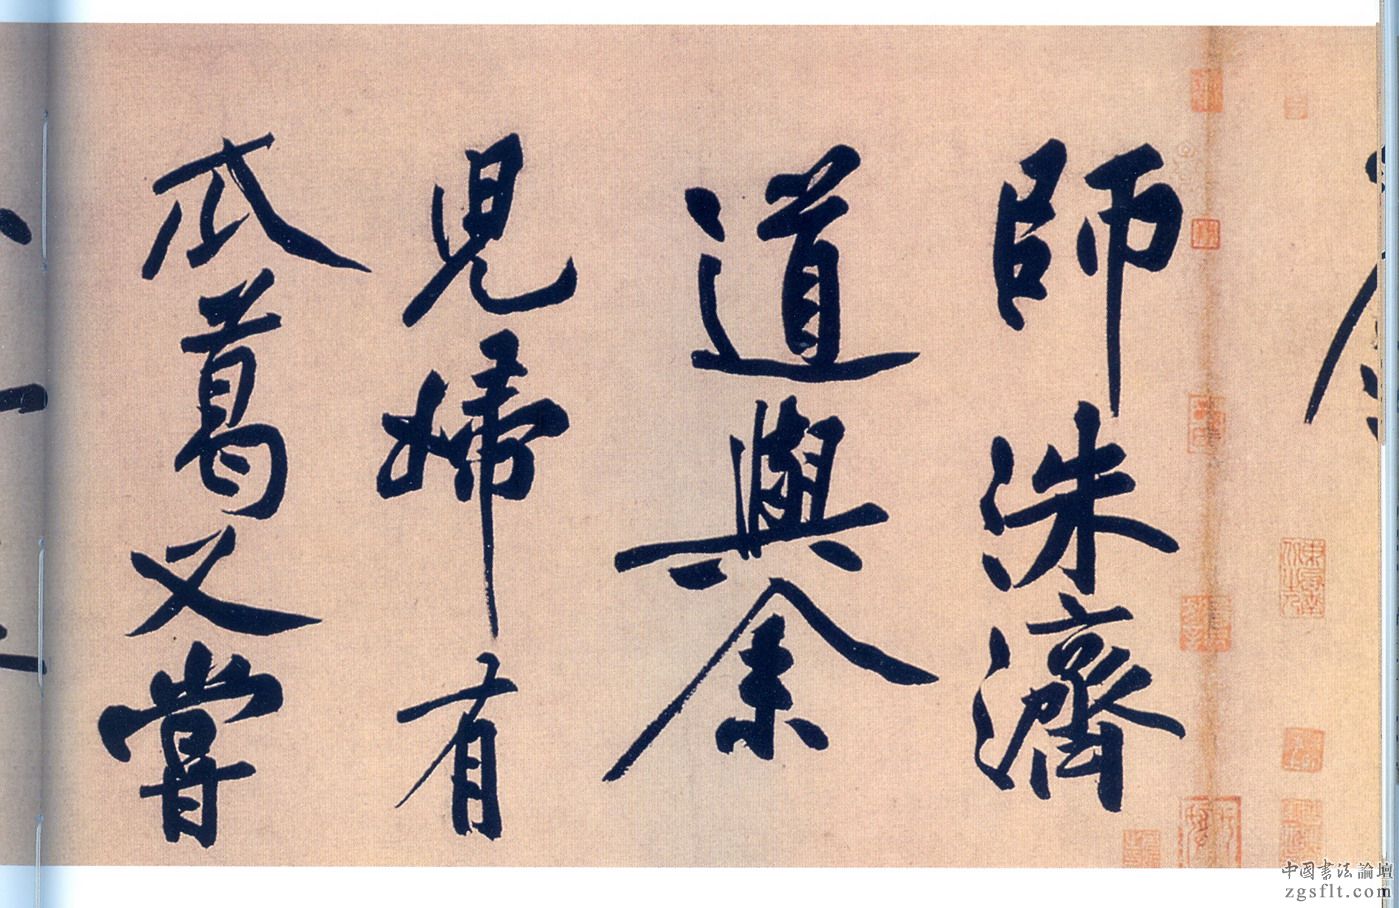 師洙濟
道與余
兒婦有
瓜葛又嘗
中国书法論壇
zgsflt.com